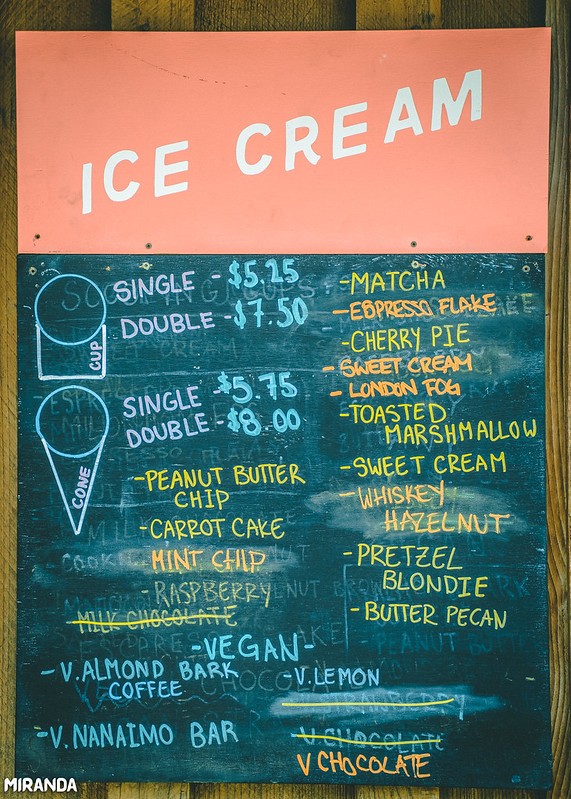 ICE CREAM
SINGLE - $5.25
DOUBLE - $7.50
CUP
SINGLE - $5.75
DOUBLE - $8.00
CONE
- PEANUT BUTTER
CHIP
- CARROT CAKE
- MINT CHIP
- RASPBERRY
MILK CHOCOLATE
- MATCHA
- ESPRESSO FLAKE
- CHERRY PIE
- SWEET CREAM
- LONDON FOG
- TOASTED
MARSHMALLOW
- SWEET CREAM
- WHISKEY
HAZELNUT
- PRETZEL
BLONDIE
- BUTTER PECAN
- VEGAN -
- V. ALMOND BARK
COFFEE
- V. NANAIMO BAR
- V. LEMON
STRAWBERRY
V. CHOCOLATE
V CHOCOLATE
MIRANDA